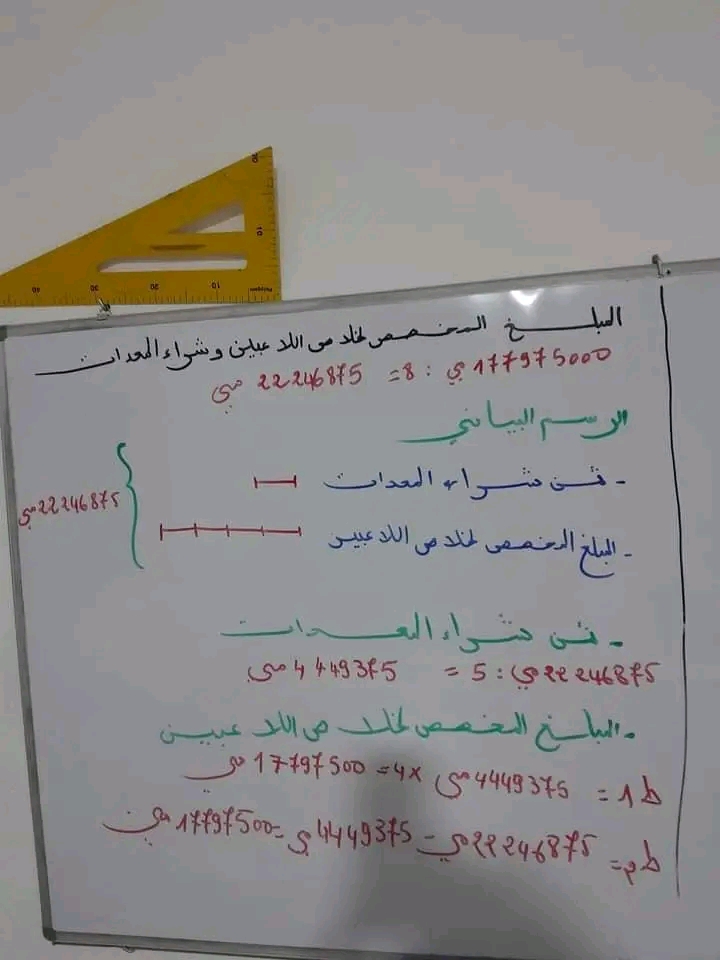 المبلغ المخصص لخلاص اللاعبين وشراء المعدات
177975000 مي : 8 = 22246875 مي
الرسم البياني
- ثمن شراء المعدات
- المبلغ المخصص لخلاص اللاعبين
22246875 مي
- ثمن شراء المعدات
22246875 مي : 5 = 4449375 مي
- المبلغ المخصص لخلاص اللاعبين
ط1 = 4449375 مي ×4 = 17797500 مي
ط2 = 22246875 مي - 4449375 مي = 17797500 مي